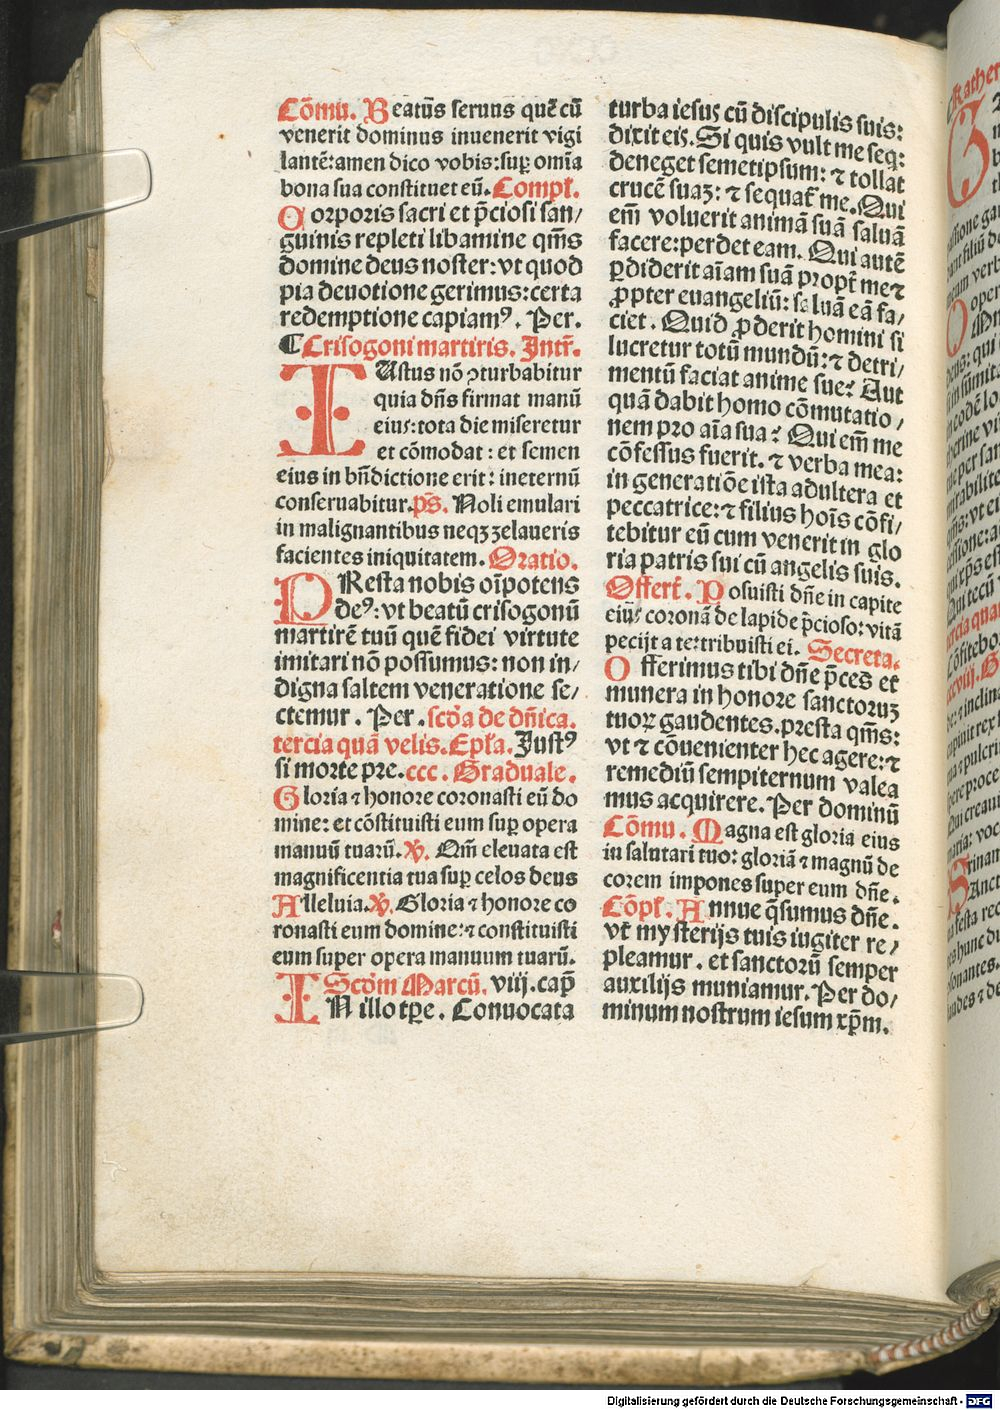 Cōmu. Beatus seruus quē cū
venerit dominus inuenerit vigi
lantē: amen dico vobis: suꝑ om̄ia
bona sua constituet eū. Compl̄.
Corporis sacri et p̄ciosi san/
guinis repleti libamine qm̄s
domine deus noster: vt quod
pia deuotione gerimus: certa
redemptione capiamꝰ. Per.
⸿ Crisogoni martiris. Intr̄.
IUstus nō ꝯturbabitur
quia dn̄s firmat manū
eius: tota die miseretur
et cōmodat: et semen
eius in bn̄dictione erit: in eternū
conseruabitur. ps̄. Noli emulari
in malignantibus neqꝫ zelaueris
facientes iniquitatem. Oratio.
PResta nobis oīpotens
deꝰ: vt beatū crisogonū
martirē tuū quē fidei virtute
imitari nō possumus: non in/
digna saltem veneratione se/
ctemur. Per. scd̄a de dn̄ica.
tercia quā velis. Epl̄a. Justꝰ
si morte pre. ccc. Graduale.
Gloria ⁊ honore coronasti eū do
mine: et cōstituisti eum suꝑ opera
manuū tuarū. ℣. Qm̄ eleuata est
magnificentia tua suꝑ celos deus
Alleluia. ℣. Gloria ⁊ honore co
ronasti eum domine: ⁊ constituisti
eum super opera manuum tuarū.
Scd̄m Marcū. viij. cap̄
IN illo tꝑe. Conuocata
turba iesus cū discipulis suis:
dixit eis. Si quis vult me seq̄:
deneget semetipsum: ⁊ tollat
crucē suaꝫ: ⁊ sequat᷑ me. Qui
em̄ voluerit animā suā saluā
facere: perdet eam. Qui autē
ꝑdiderit aīam suā propt̄ me ⁊
ꝓpter euangeliū: saluā eā fa/
ciet. Quid ꝓderit homini si
lucretur totū mundū: ⁊ detri/
mentū faciat anime sue? Aut
quā dabit homo cōmutatio/
nem pro aīa sua? Qui em̄ me
cōfessus fuerit. ⁊ verba mea:
in generatiōe ista adultera et
peccatrice: ⁊ filius hoīs cōfi/
tebitur eū cum venerit in glo
ria patris sui cū angelis suis.
Offert̄. Posuisti dn̄e in capite
eius coronā de lapide p̄cioso: vitā
pecijt a te: tribuisti ei. Secreta.
Offerimus tibi dn̄e p̄ces et
munera in honore sanctoruꝫ
tuoꝝ gaudentes. presta qm̄s:
vt ⁊ cōuenienter hec agere: ⁊
remediū sempiternum valea
mus acquirere. Per dominū
Cōmu. Magna est gloria eius
in salutari tuo: gloriā ⁊ magnū de
corem impones super eum dn̄e.
Cōpl̄. Annue q̄sumus dn̄e.
vt mysterijs tuis iugiter re/
pleamur. et sanctorū semper
auxilijs muniamur. Per do/
minum nostrum iesum xp̄m.
Digitalisierung gefördert durch die Deutsche Forschungsgemeinschaft - DFG